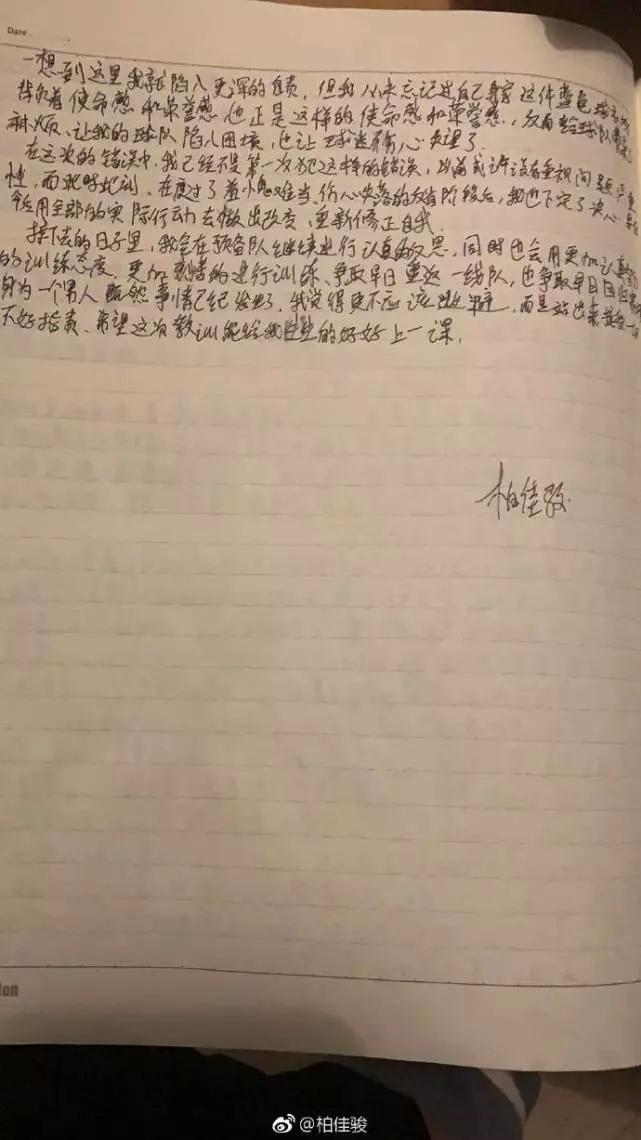 Date
一想到这里我就陷入更深的自责，但我从未忘记过自己身穿这件蓝色球衣
背负着使命感和荣誉感，也正是这样的使命感和荣誉感，反而给球队
麻烦、让我的球队陷入困境，也让球迷伤心失望了。
在这次的错误中，我已经不是第一次犯这样的错误，以前或许没有重视问题严重
性，而此时此刻，在度过了羞愧难当、伤心失落的反省阶段后，我也下定了决心
用全部的实际行动去做出改变，重新修正自我。
接下去的日子里，我会在预备队继续进行认真的反思，同时也会用更加认真
的训练态度，更加刻苦的进行训练、争取早日重返一线队，也争取早日回归
身为一个男人既然事情已经发生了，我觉得更不应该逃避，而是站出来
不好指责、希望这次教训能给我的好好上一课。
柏佳骏
ton
@柏佳骏